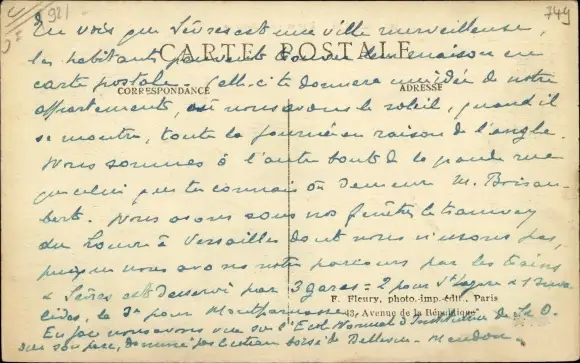 921
749
Tu vois que Sèvres est une ville merveilleuse,
les habitants peuvent trouver leur maison en
CARTE POSTALE
carte postale. Celle-ci te donnera une idée de notre
CORRESPONDANCE
ADRESSE
appartement, où nous avons le soleil, quand il
se montre, toute la journée en raison de l'angle.
Nous sommes à l'autre bout de la grande rue
que celui que tu connais où demeure M. Boisam-
bert. Nous avons sous nos fenêtres le tramway
du Louvre à Versailles dont nous n'usons pas,
puisque nous avons notre parcours par les trains
Sèvres est desservi par 3 gares = 2 pour St Lazare & Inva
F. Fleury, photo-imp-édit., Paris
lides, le 3e pour Montparnasse
43, Avenue de la République
En face nous avons vue sur l'Ecole Normale d'Institutrices de S. O.
sur son parc, dominé par le coteau boisé de Bellevue - Meudon.